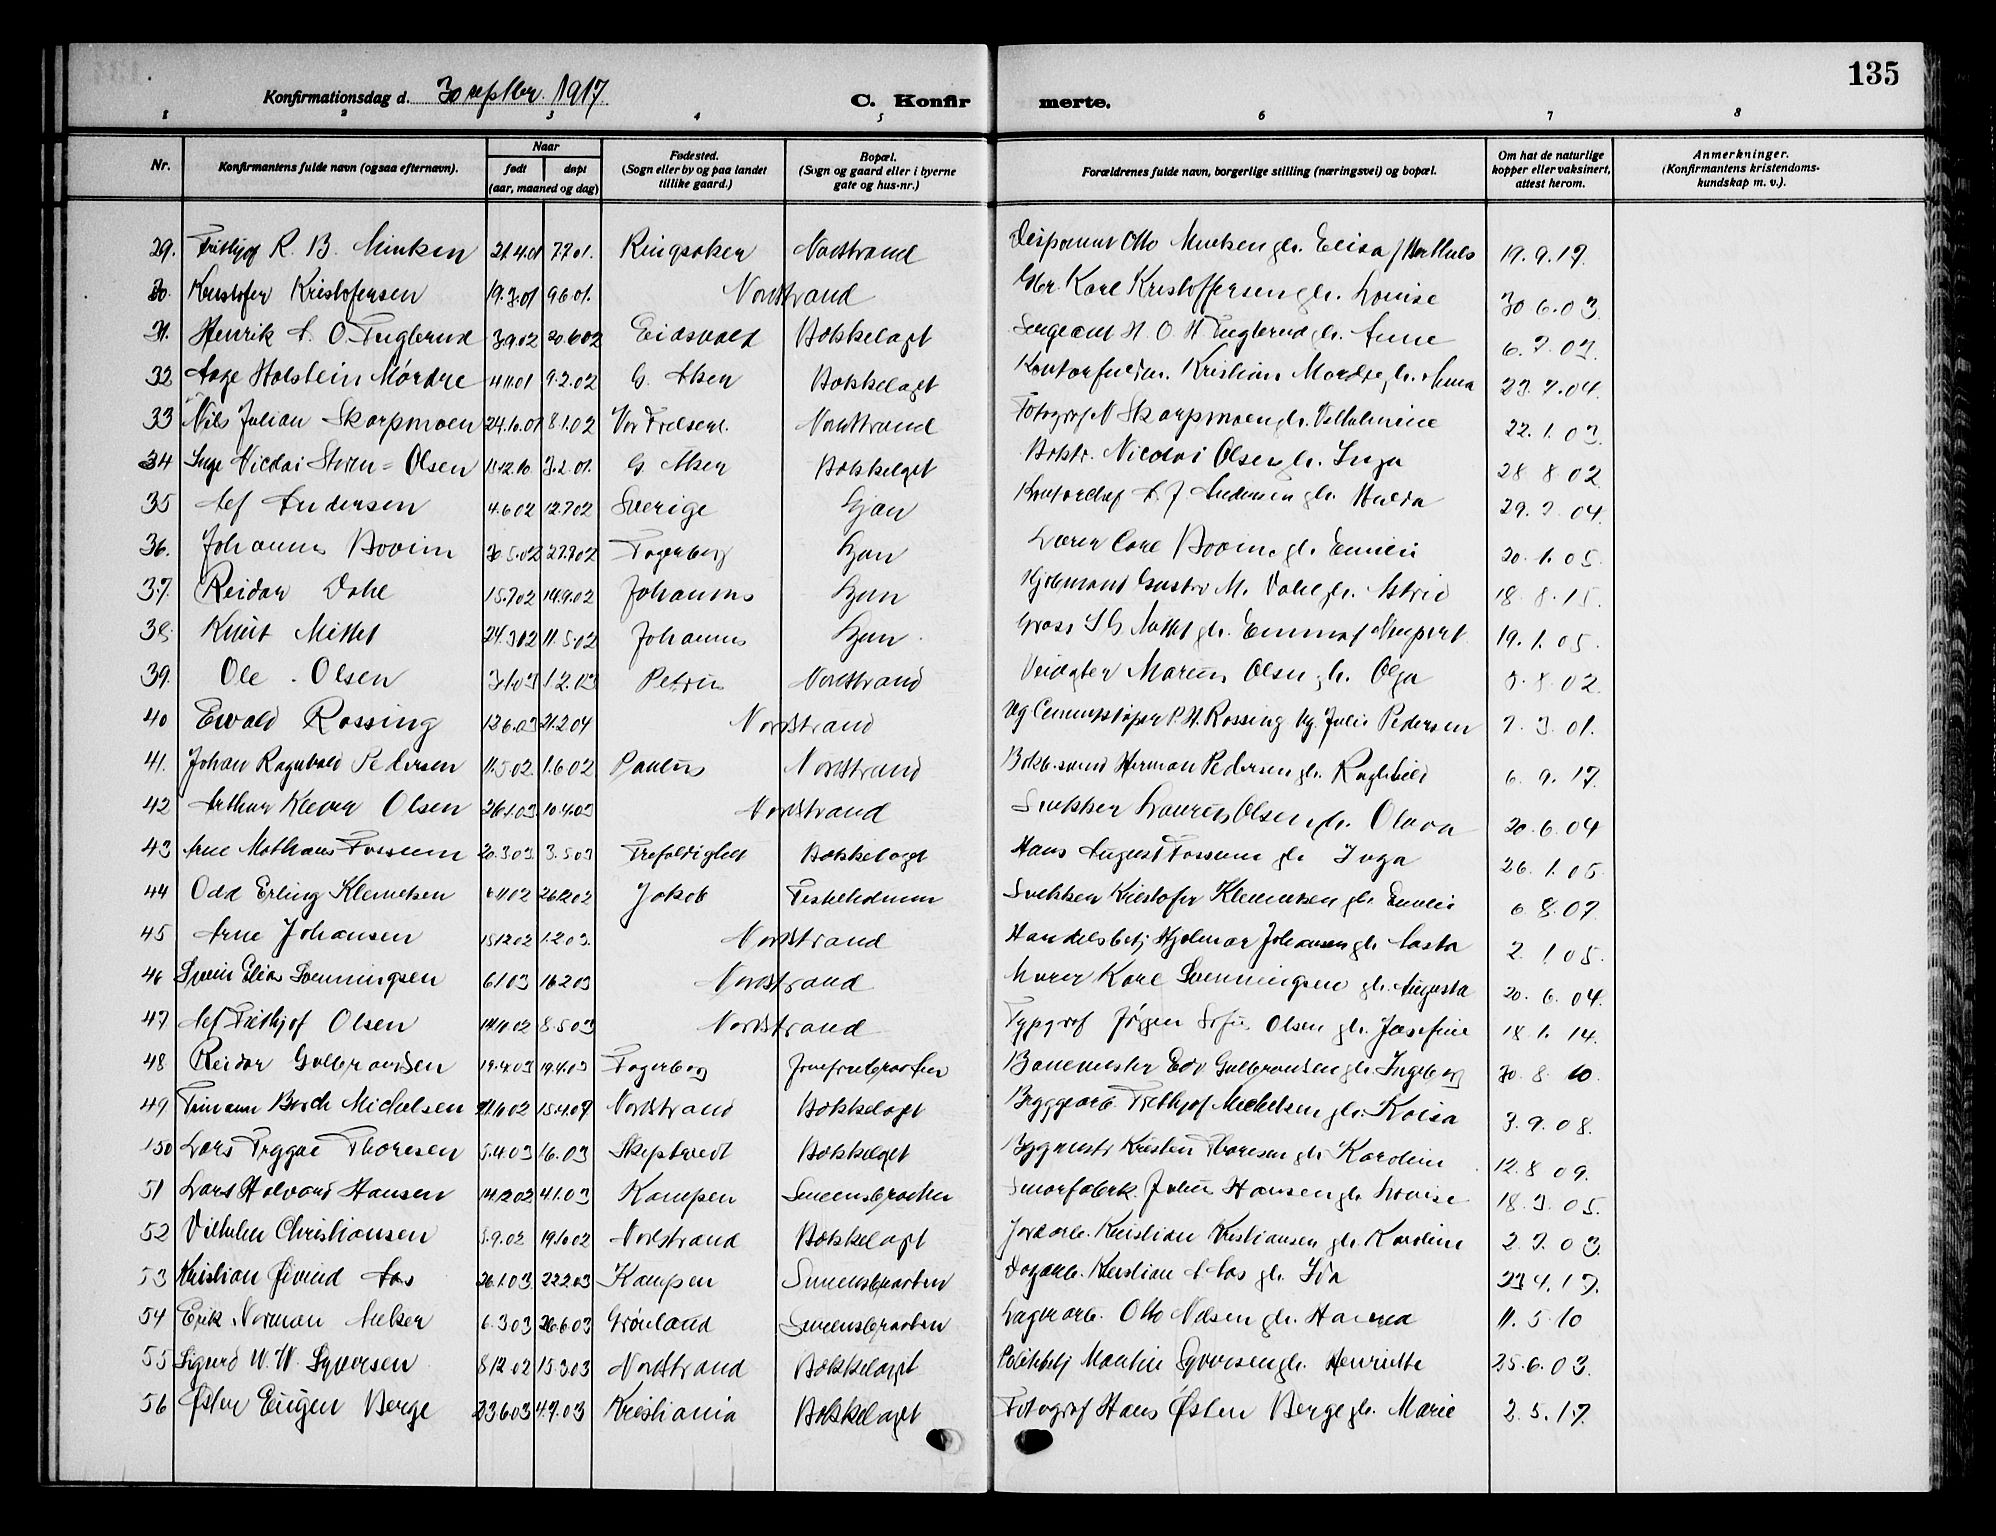 135
Konfirmationsdag d. 30 septbr. 1917
C. Konfirmerte.
1 2 3 4 5 6 7 8
Nr. Konfirmantens fulde navn (ogsaa efternavn). Naar født døpt (aar, maaned og dag) Fødested. (Sogn eller by og paa landet tillike gaard.) Bopæl. (Sogn og gaard eller i byerne gate og hus-nr.) Forældrenes fulde navn, borgerlige stilling (næringsvei) og bopæl. Om hat de naturlige kopper eller vaksinert, attest herom. Anmerkninger. (Konfirmantens kristendoms-kundskap m. v.).
29. Frithjof R. B. Minken 21.4.01 7.7.01. Ringsaker Nordstrand Disponent Otto Minken gh. Elisa f 19.9.17.
30. Kristofer Kristofersen 19.3.01 9.6.01. Nordstrand Karl Kristoffersen gh. Louise 30 6.03.
31. Henrik A. O. Fuglerud 3.9.02 20.6.02 Eidsvold Bækkelaget Sergeant H. O. H. Fuglerud gh. Anne 6.7.03.
32 Aage Holstein Mørdre 4.11.01 9.2.02 G. Aker Bækkelaget Kontorfuldm. Kristian Mørdre gh. Anna 23.7.04.
33 Nils Julian Skarpmoen 24.10.01 8.1.02 Vor Frelsers. Nordstrand Fotograf N Skarpmoen gh. Vilhelmine 22.1.03.
34 Inge Nicolai Steen-Olsen 3.2.01. G. Aker Bækkelaget Nicolai Olsen gh. Inga 28 8 02.
35 Alf Andersen 4.6.02 12.7.02 Sverige Ljan Kontorchef A. J. Andersen gh. Hulda 29.7.04.
36. Johannes Bovim 30.5.02 27.7.02 Fagerborg Ljan Lærer Carl Bovim gh. Emilie 20.1.05.
37. Reidar Dahl 15.7.02 14.9.02 Johannes Ljan Gustav M. Dahl gh. Astrid 18.8.15.
38. Knut Mittet 24.3.02 11.5.02 Johannes Ljan. Gross. Mittet gh. Emma f 19.1.05.
39. Ole Olsen 3.1.03 1.2.03 Petrus Nordstrand Marius Olsen gh. Olga 8.02.
40 Ewald Rossing 12.6.03 21.2.04 Nordstrand Ug Cementstøper P. H. Rossing Pg. Julie Pedersen 7.3.01.
41. Johan Ragnvald Pedersen 11.5.02. 1.6.02 Paulus Nordstrand Herman Pedersen gh. Raghild 6.9.17.
42 Arthur Olsen 26.1.03. 10.4.03 Nordstrand Snekker Laurits Olsen gh. Olava 20.6.04
43 Arne Mathæus Fossum 20.3.03 3.5.03 Trefoldighed Bækkelaget Hans August Fossum gh. Inga 26.1.05.
44 Odd Erling Klemetsen 6.11.02 26.12.02 Jakob Fiskeholmen Snekker Kristofer Klemetsen gh. Emilie 6.8.07.
45 Arne Johansen 15.12.02 1.2.03. Nordstrand Handelsbetj Hjalmar Johansen gh. Aasta 2.1.05.
46 Svein Elias Svenningsen 6.1.03 16.2.03 Nordstrand Murer Karl Svenningsen gh. Augusta 20.6.04.
47 Alf Frithjof Olsen 14.11.02 8.5.03 Nordstrand Typograf Jørgen Olsen gh. Josefine 18.1.14.
48 Reidar Gulbrandsen 19.4.03 Fagerborg Jomfrubraaten Banemester Edv Gulbrandsen gh. Ingeborg 30.8.10.
49 Finn Borch Michelsen 15.4.07 Nordstrand Bækkelaget Byggearb. Frithjof Michelsen gh. Kaisa 3.9.08.
150 Lars Trygve Thoresen 5.4.03 1.6.03 Skiptvedt Bækkelaget Bygmestr Kristen Thoresen gh Karoline 12.8 09.
51 Lars Halvard Hansen 14.12.02 4.1.03 Kampen Simensbraaten Smørfabrk. Julius Hansen gh. Lovise 18.3.05.
52 Vilhelm Christiansen 5.9.02 19.10.02 Nordstrand Bækkelaget Jordarb. Kristian Kristiansen gh. Karoline 2.7.03.
53 Kristian Øivind Aas 26.1.03. 22.2.03 Kampen Simensbraaten Dagarb. Kristian A Aas gh. Ida 23 4.17.
54 Erik Norman Nilsen 6.3.03 26.6.03 Grønland Simensbraaten Lagerarb. Otto Nilsen gh. Hanna 11.5.10
55 Sigurd W. W. Syversen 8.12.02 15.3.03 Nordstrand Bækkelaget Politibtj Martin Syversen gh. Henriette 25.6.03.
56 Østen Eugen Berge 23.6.03 4.7.03 Kristiania Bækkelaget Fotograf Hans Østen Berge gh. Marie 2.5.17.